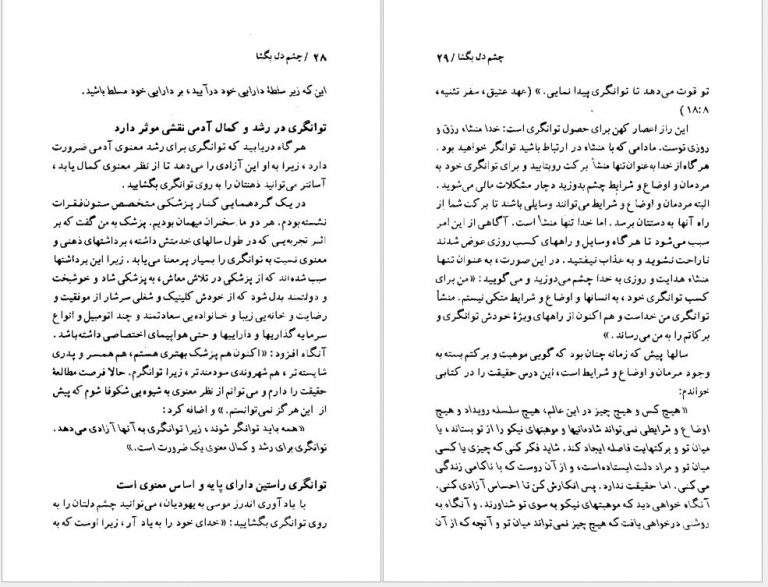 ۲۸ / چشم دل بگشا
این که زیر سلطهٔ دارایی خود درآیید، بر دارایی خود مسلط باشید.
توانگری در رشد و کمال آدمی نقشی موثر دارد
هر گاه دریابید که توانگری برای رشد معنوی آدمی ضرورت
دارد، زیرا به او این آزادی را می‌دهد تا از نظر معنوی کمال یابد،
آسانتر می‌توانید ذهنتان را به روی توانگری بگشایید.
در یک گردهمایی کنار پزشکی متخصص ستون‌فقرات
نشسته‌بودم. هر دو ما سخنران میهمان بودیم. پزشک به من گفت که بر
اثر تجربه‌یی که در طول سالهای خدمتش داشته، برداشتهای ذهنی و
معنوی نسبت به توانگری را بسیار پرمعنا می‌یابد. زیرا این برداشتها
سبب شده‌اند که از پزشکی در تلاش معاش، به پزشکی شاد و خوشبخت
و دولتمند بدل شود که از خودش کلینیک و شغلی سرشار از موفقیت و
رضایت و خانه‌یی زیبا و خانواده‌یی سعادتمند و چند اتومبیل و انواع
سرمایه گذاریها و داراییها و حتی هواپیمای اختصاصی داشته‌باشد.
آنگاه افزود: «اکنون هم پزشک بهتری هستم، هم همسر و پدری
شایسته‌تر، هم شهروندی سودمندتر، زیرا توانگرم. حالا فرصت مطالعهٔ
حقیقت را دارم و می‌توانم از نظر معنوی به شیوه‌یی شکوفا شوم که پیش
از این هرگز نمی‌توانستم.» و اضافه کرد:
«همه باید توانگر شوند، زیرا توانگری به آنها آزادی می‌دهد.
توانگری برای رشد و کمال معنوی یک ضرورت است.»
توانگری راستین دارای پایه و اساس معنوی است
با یاد آوری اندرز موسی به یهودیان، می‌توانید چشم دلتان را به
روی توانگری بگشایید: «خدای خود را به یاد آر، زیرا اوست که به
چشم دل بگشا / ۲۹
تو قوت می‌دهد تا توانگری پیدا نمایی.» (عهد عتیق، سفر تثنیه،
۸:‏۱۸)
این راز اعصار کهن برای حصول توانگری است: خدا منشاء رزق و
روزی توست. مادامی که با منشاء در ارتباط باشید توانگر خواهید بود.
هر گاه از خدا به عنوان تنها منشأ برکت روبتابید و برای توانگری خود به
مردمان و اوضاع و شرایط چشم بدوزید دچار مشکلات مالی می‌شوید.
البته مردمان و اوضاع و شرایط می‌توانند وسایلی باشند تا برکت شما از
راه آنها به دستتان برسد. اما خدا تنها منشأ است. آگاهی از این امر
سبب می‌شود تا هر گاه وسایل و راههای کسب روزی عوض شدند
ناراحت نشوید و به عذاب نیفتید. در این صورت، به عنوان تنها
منشاء هدایت و روزی به خدا چشم می‌دوزید و می‌گویید: «من برای
کسب توانگری خود، به انسانها و اوضاع و شرایط متکی نیستم. منشأ
توانگری من خداست و هم اکنون از راههای ویژهٔ خودش توانگری و
برکاتم را به من می‌رساند.»
سالها پیش که زمانه چنان بود که گویی موهبت و برکتم بسته به
وجود مردمان و اوضاع و شرایط است، این درس حقیقت را در کتابی
خواندم:
«هیچ کس و هیچ چیز در این عالم، هیچ سلسله رویداد و هیچ
اوضاع و شرایطی نمی‌تواند شادمانیها و موهبتهای نیکو را از تو بستاند، یا
میان تو و برکتهایت فاصله ایجاد کند. شاید فکر کنی که چیزی یا کسی
میان تو و مراد دلت ایستاده‌است، و از آن روست که با ناکامی زندگی
می‌کنی. اما حقیقت ندارد. پس انکارش کن تا احساس آزادی کنی.
آنگاه خواهی دید که موهبتهای نیکو به سوی تو شناورند. و آنگاه به
روشنی درخواهی یافت که هیچ چیز نمی‌تواند میان تو و آنچه که از آن